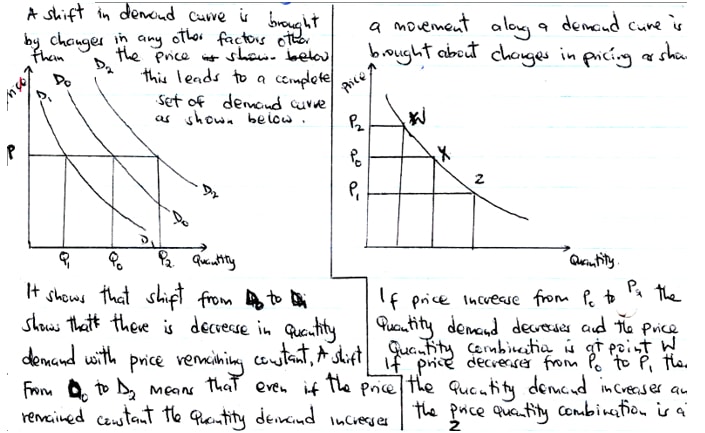 A shift in demand curve is brought
by changes in any other factors other
than the price as shown below
this leads to a complete
set of demand curve
as shown below.
Price
D1
D0
D2
P
D2
D0
D1
Q1 Q0 P2 Quantity
It shows that shift from D0 to D1
shows that there is decrease in Quantity
demand with price remaining constant, A shift
From D0 to D2 means that even if the price
remained constant the Quantity demand increases
a movement along a demand curve is
brought about changes in pricing as sho
Price
P2
W
P0
X
P1
Z
Quantity.
If price increase from P0 to P2 the
Quantity demand decreases and the price
Quantity combinatia is at point W
If price decreases from P0 to P1 the
the Quantity demand increases an
the price quantity combination is a
Z